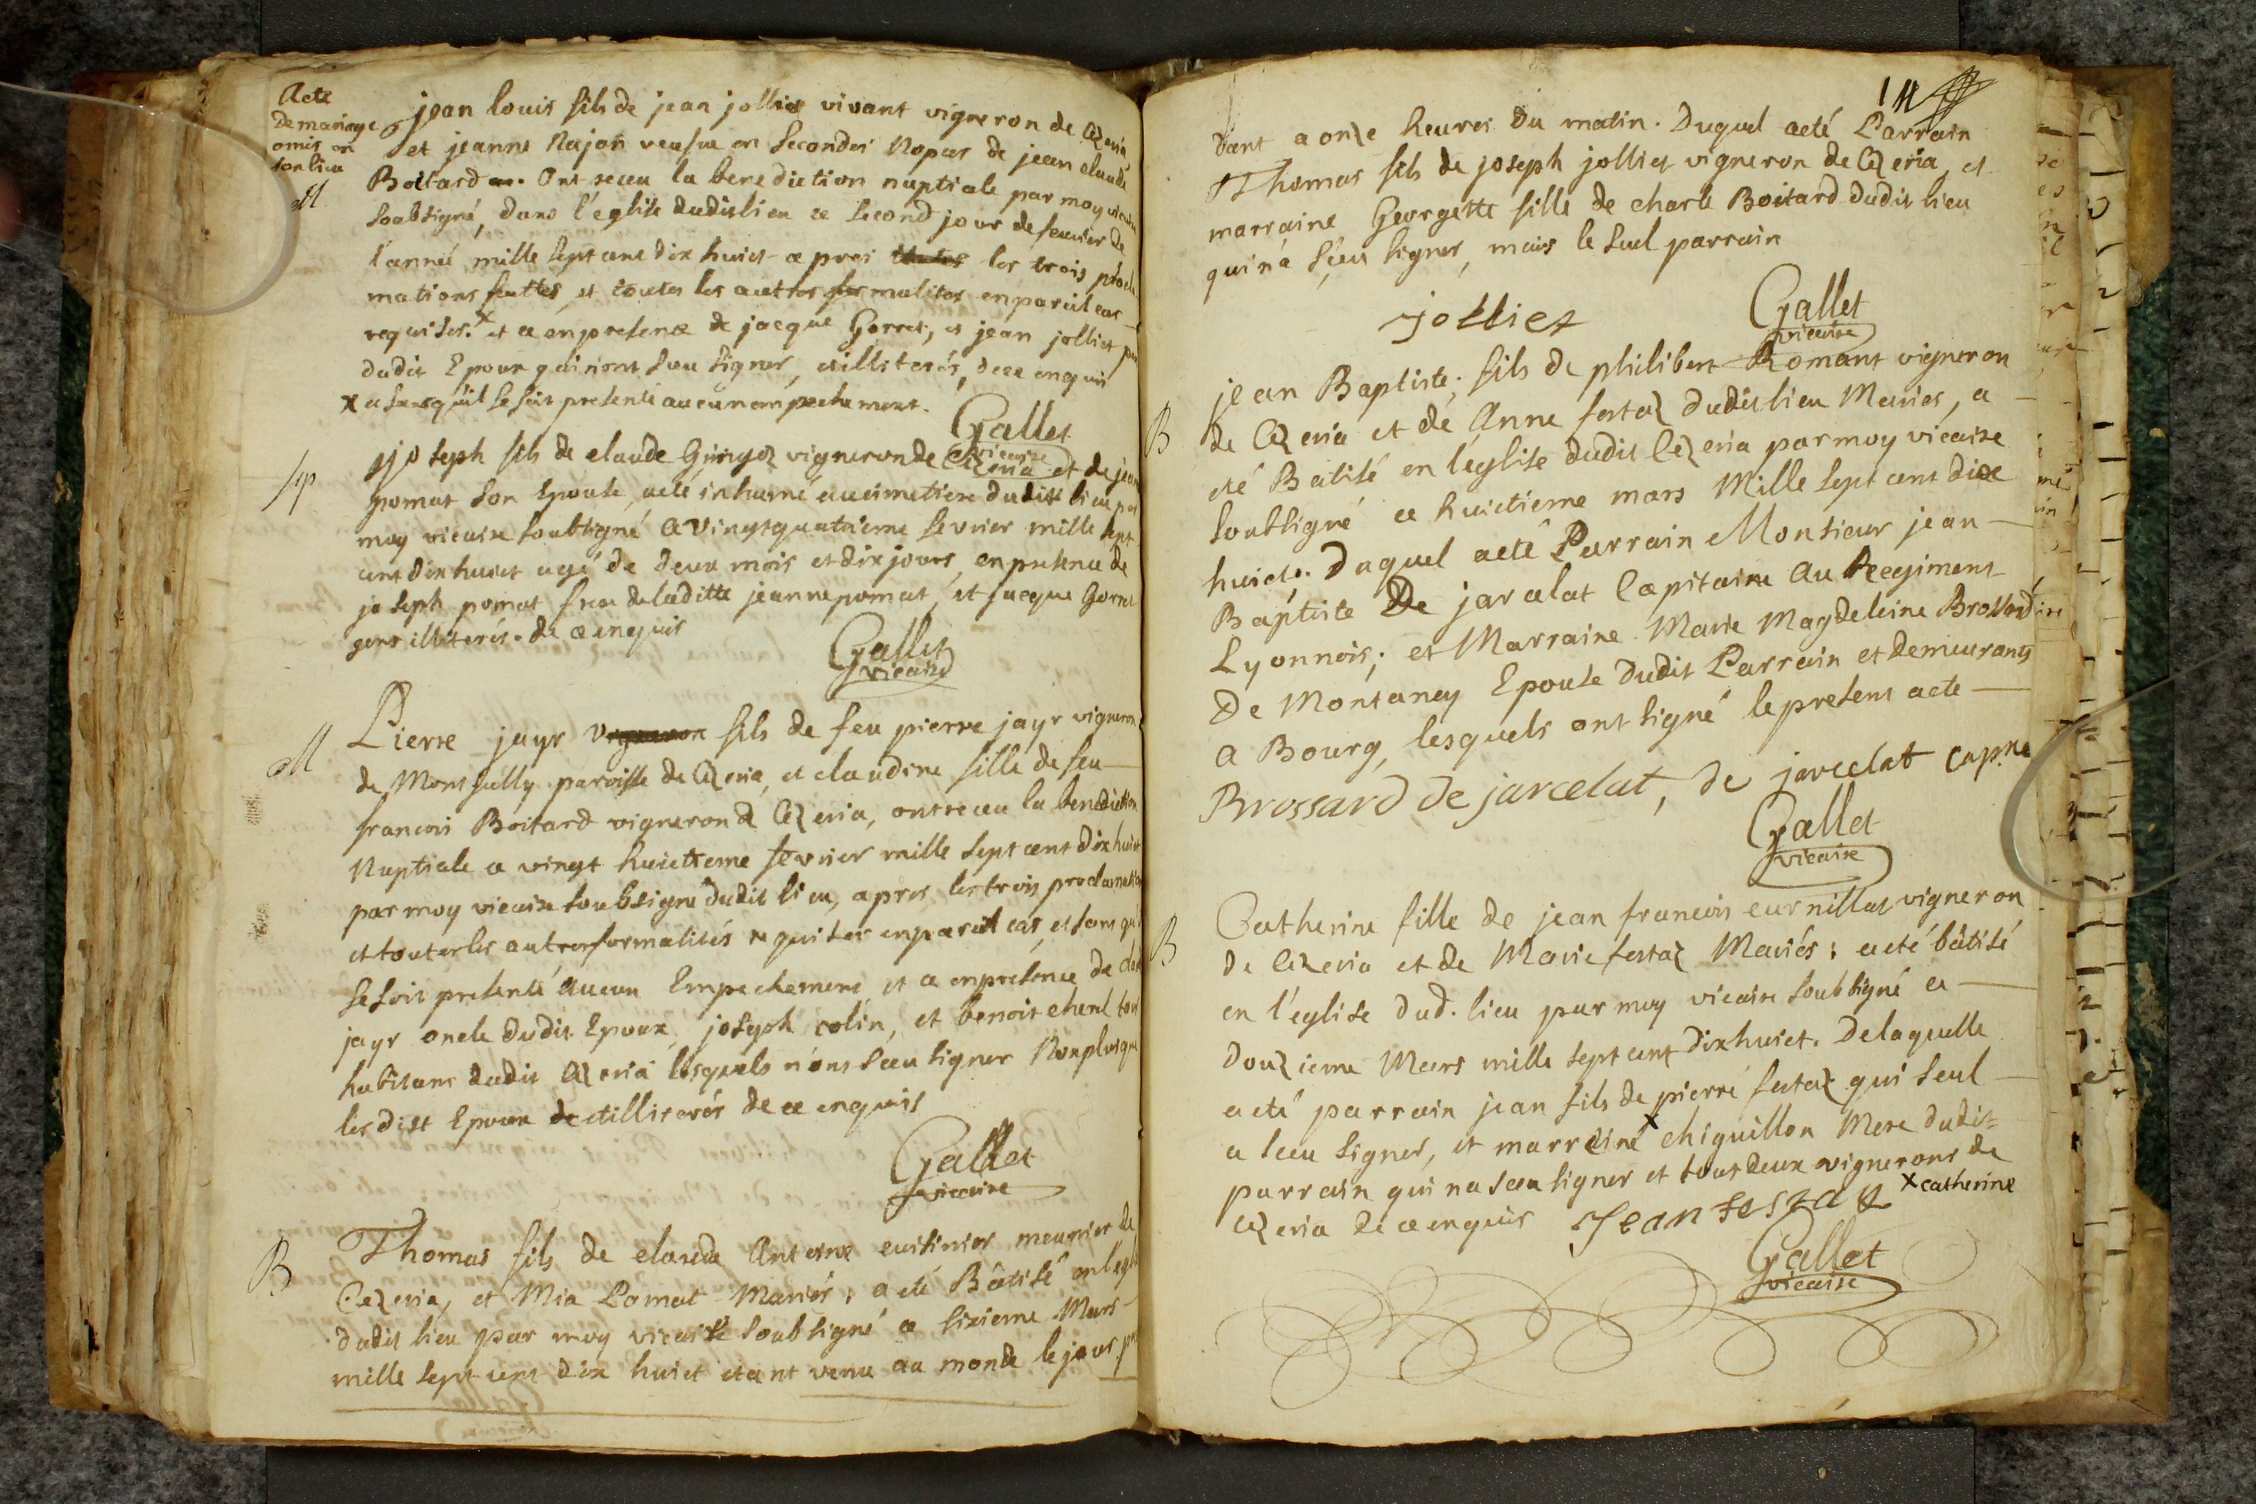 Acte
de mariage
omis en
son lieu
M
jean louis fils de jean jolliet vivant vigneron de Cezeria
et jeanne Rajon veufve en Secondes Nopces de jean claude
Boitard. Ont receu la benediction nuptiale par moy vicaire
Soubsigné, dans l'eglise dudit lieu ce Second jour de fevrier de
l'anneé mille Sept cent dix huict apres les trois procla
mations faittes, et toutes les autres formalites en pareil cas
requises. x et ce en presence de jacque Gorret, et jean jolliet
dudit Epoux qui n'ont Sceu Signer, et illiterés, de ce enquis
x et sans qu'il se soit presenté aucun empechement.
Gallet
vicaire
Sp
joseph fils de claude vigneron de Cezeria et de jeanne
pomat Son Epouse, a eté inhumé au cimetiere dudit lieu par
moy vicaire Soubsigné ce vingt quatrieme fevrier mille Sept
cent dix huict agé de deux mois et dix jours, en presence de
joseph pomat frere de laditte jeanne pomat, et jacque Gorret
gens illiterés. de ce enquis
Gallet
vicaire
M
Pierre jayr vigneron fils de feu pierre jayr vigneron
de Mont July paroisse de Cezeria, et claudine fille de feu
francois Boitard vigneron de Cezeria, ont receu la benediction
Nuptiale ce vingt huictieme fevrier mille Sept cent dix huict
par moy vicaire Soubsigné dudit lieu, apres les trois proclamations
et toutes les autres formalités requises en pareil cas, et sans qu'il
Se soit presenté aucun Empechement et ce en presence de
jayr oncle dudit Epoux, joseph colin, et benoit
habitans dudit Cezeria lesquels n'ont Sceu Signer Non plus que
les dist Epoux et illiterés de ce enquis
Gallet
vicaire
B
Thomas fils de claude Antoine cuisinier meunier de
Cezeria, et Mia Pomat Mariés, a eté Bâtisé en l'eglise
dudit lieu par moy vicaire Soubsigné ce Sixieme Mars
mille Sept cent dix huict etant venu au monde le jour
114
dant a onze heures du matin. Duquel a eté Parrain
Thomas fils de joseph jolliet vigneron de Cezeria, et
marraine Georgette fille de charle Boitard dudit lieu
qui n'a Sceu Signer, mais le Seul parrain
jolliet
Gallet
vicaire
B
jean Baptiste, fils de philibert Romant vigneron
de Cezeria et de Anne festaz dudit lieu Mariés, a
eté Batisé en l'eglise dudit Cezeria par moy vicaire
Soubsigné ce huictieme mars Mille Sept cent dix
huict. Duquel a eté Parrain Monsieur jean
Baptiste De jarcelat Capitaine au Regiment
Lyonnois; et Marraine Marie Magdeleine Brossard
De Montaney Epouse dudit Parrain et demeurants
a Bourg, lesquels ont signé le present acte
Brossard de jarcelat, de jarcelat capne
Gallet
vicaire
B
Catherine fille de jean francois curnillat vigneron
de Cezeria et de Marie festaz Mariés: a eté bâtisé
en l'eglise dud. lieu par moy vicaire Soubsigné ce
douzieme Mars mille Sept cent dix huict. De laquelle
a eté parrain jean fils de pierre festaz qui Seul
a Sceu Signer, et marraine x chiquillon Mere dudit
parrain qui n'a Sceu Signer et tout deux vignerons de
Cezeria de ce enquis Jean festaz x catherine
Gallet
vicaire